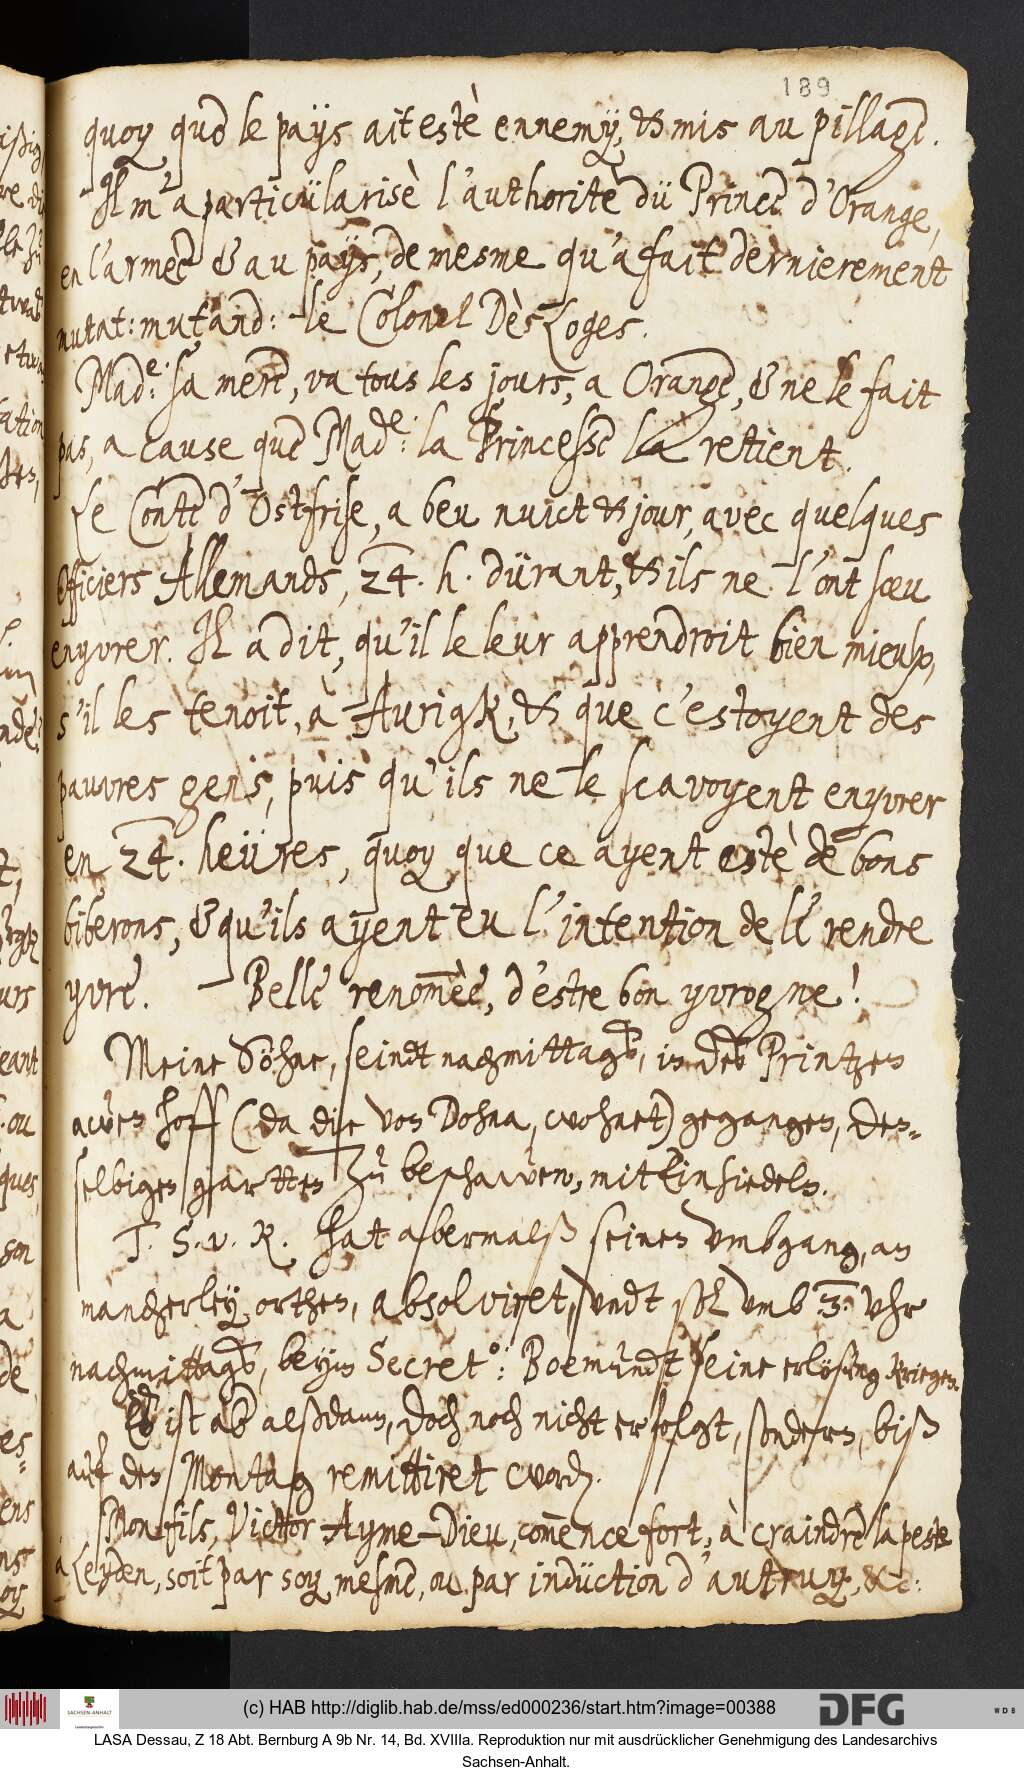 189
quoy que le päys ait estè ennemÿ, & mis au pillage.
Il m'a particülarisè l'authoritè dü Prince d'Orange,
en l'armèe & au päys, de mesme qu'a fait dernierement
mutat: mutand: le Colonel Dès Loges.
Made: sa mere, va tous les jours, a Orange, & ne le fait
pas, a cause que Made: la Princesse la retient.
Le Conte d'Ostfrise, a beu nuict & jour, avec quelques
Officiers Allemands, 24. h. dürant, & ils ne l'ont sceu
enyvrer. Il a dit, qu'il le leur apprendroit bien mieulx,
s'il les tenoit, à Aurigk, & que c'estoyent des
pauvres gens, puis qu'ils ne le scavoyent enyvrer
en 24. heüres, quoy que ce ayent estè de bons
biberons, & qu'ils ayent eu l'intention de le rendre
yvre. — Belle renom̄èe, d'estre bon yvrogne!
Meine Söhne, seindt nachmittags, in des Printzen
alten hoff (da die von Dohna, wohnet) gegangen, des-
selbigen gartten zu beschawen, mit Einsiedeln.
T. S. v. R. hat abermalß seinen vmbgang, an
mancherley orthen, absolviret, vndt soll vmb 3. vhr
nachmittags, beym Secreto: Boemundt seine erlösung kriegen.
Es ist aber alßdann, doch noch nicht erfolgt, sondern, biß
auf den Montag remittiret word[en].
Mon fils, Victor Ayme-Dieu, com̄ence fort, à craindre la peste
à Leyden, soit par soy mesme, ou par indüction d'autruy, &c:
(c) HAB http://diglib.hab.de/mss/ed000236/start.htm?image=00388
SACHSEN-ANHALT
DFG
WDB
LASA Dessau, Z 18 Abt. Bernburg A 9b Nr. 14, Bd. XVIIIa. Reproduktion nur mit ausdrücklicher Genehmigung des Landesarchivs
Sachsen-Anhalt.